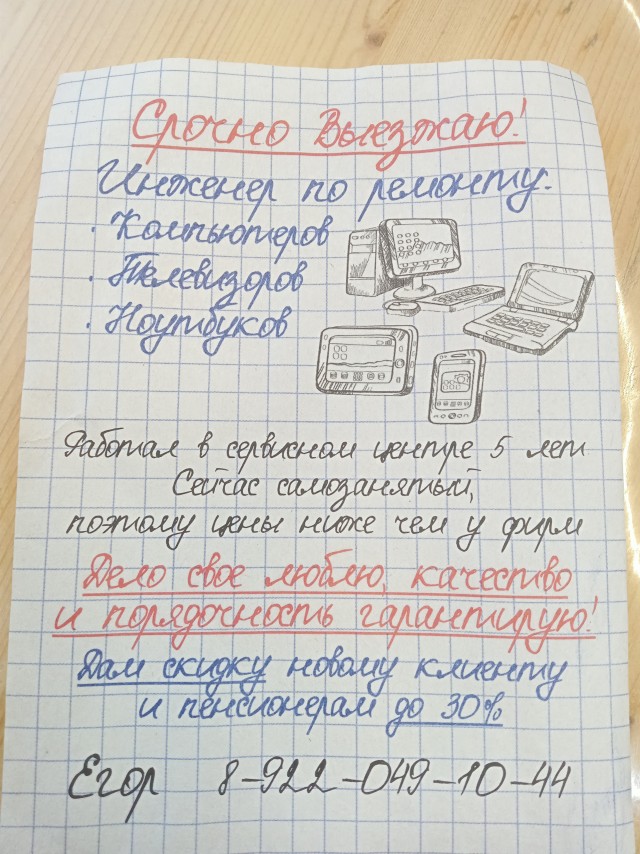 Срочно Выезжаю!
Инженер по ремонту:
· Компьютеров
· Телевизоров
· Ноутбуков
Работал в сервисном центре 5 лет
Сейчас самозанятый,
поэтому цены ниже чем у фирм
Дело свое люблю, качество
и порядочность гарантирую!
Дам скидку новому клиенту
и пенсионерам до 30%
Егор 8-922-049-10-44